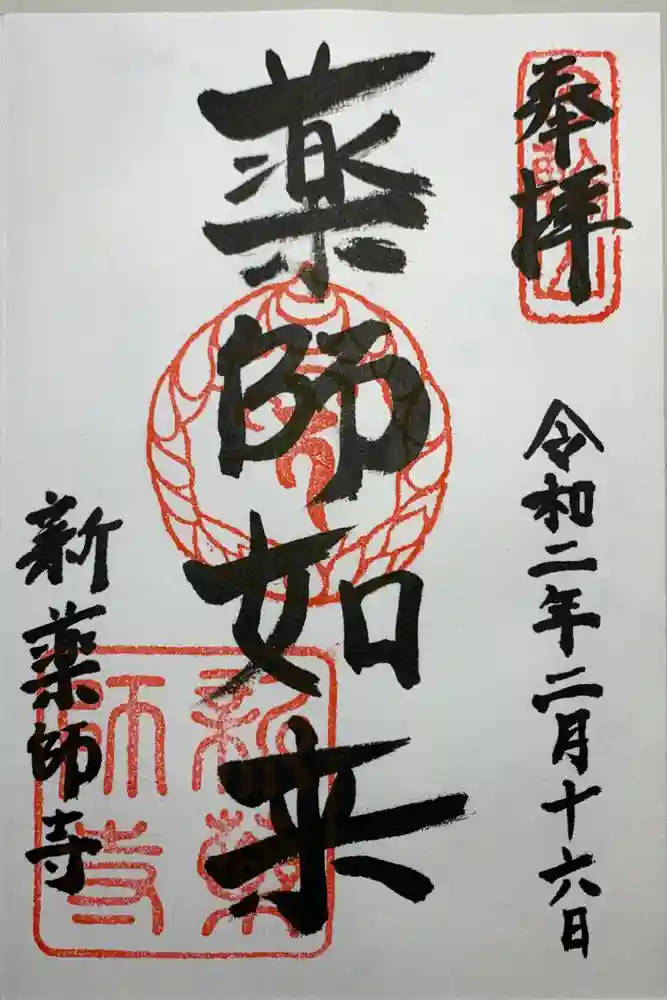 奉拝
令和二年二月十六日
薬師如来
新薬師寺
新薬
師寺